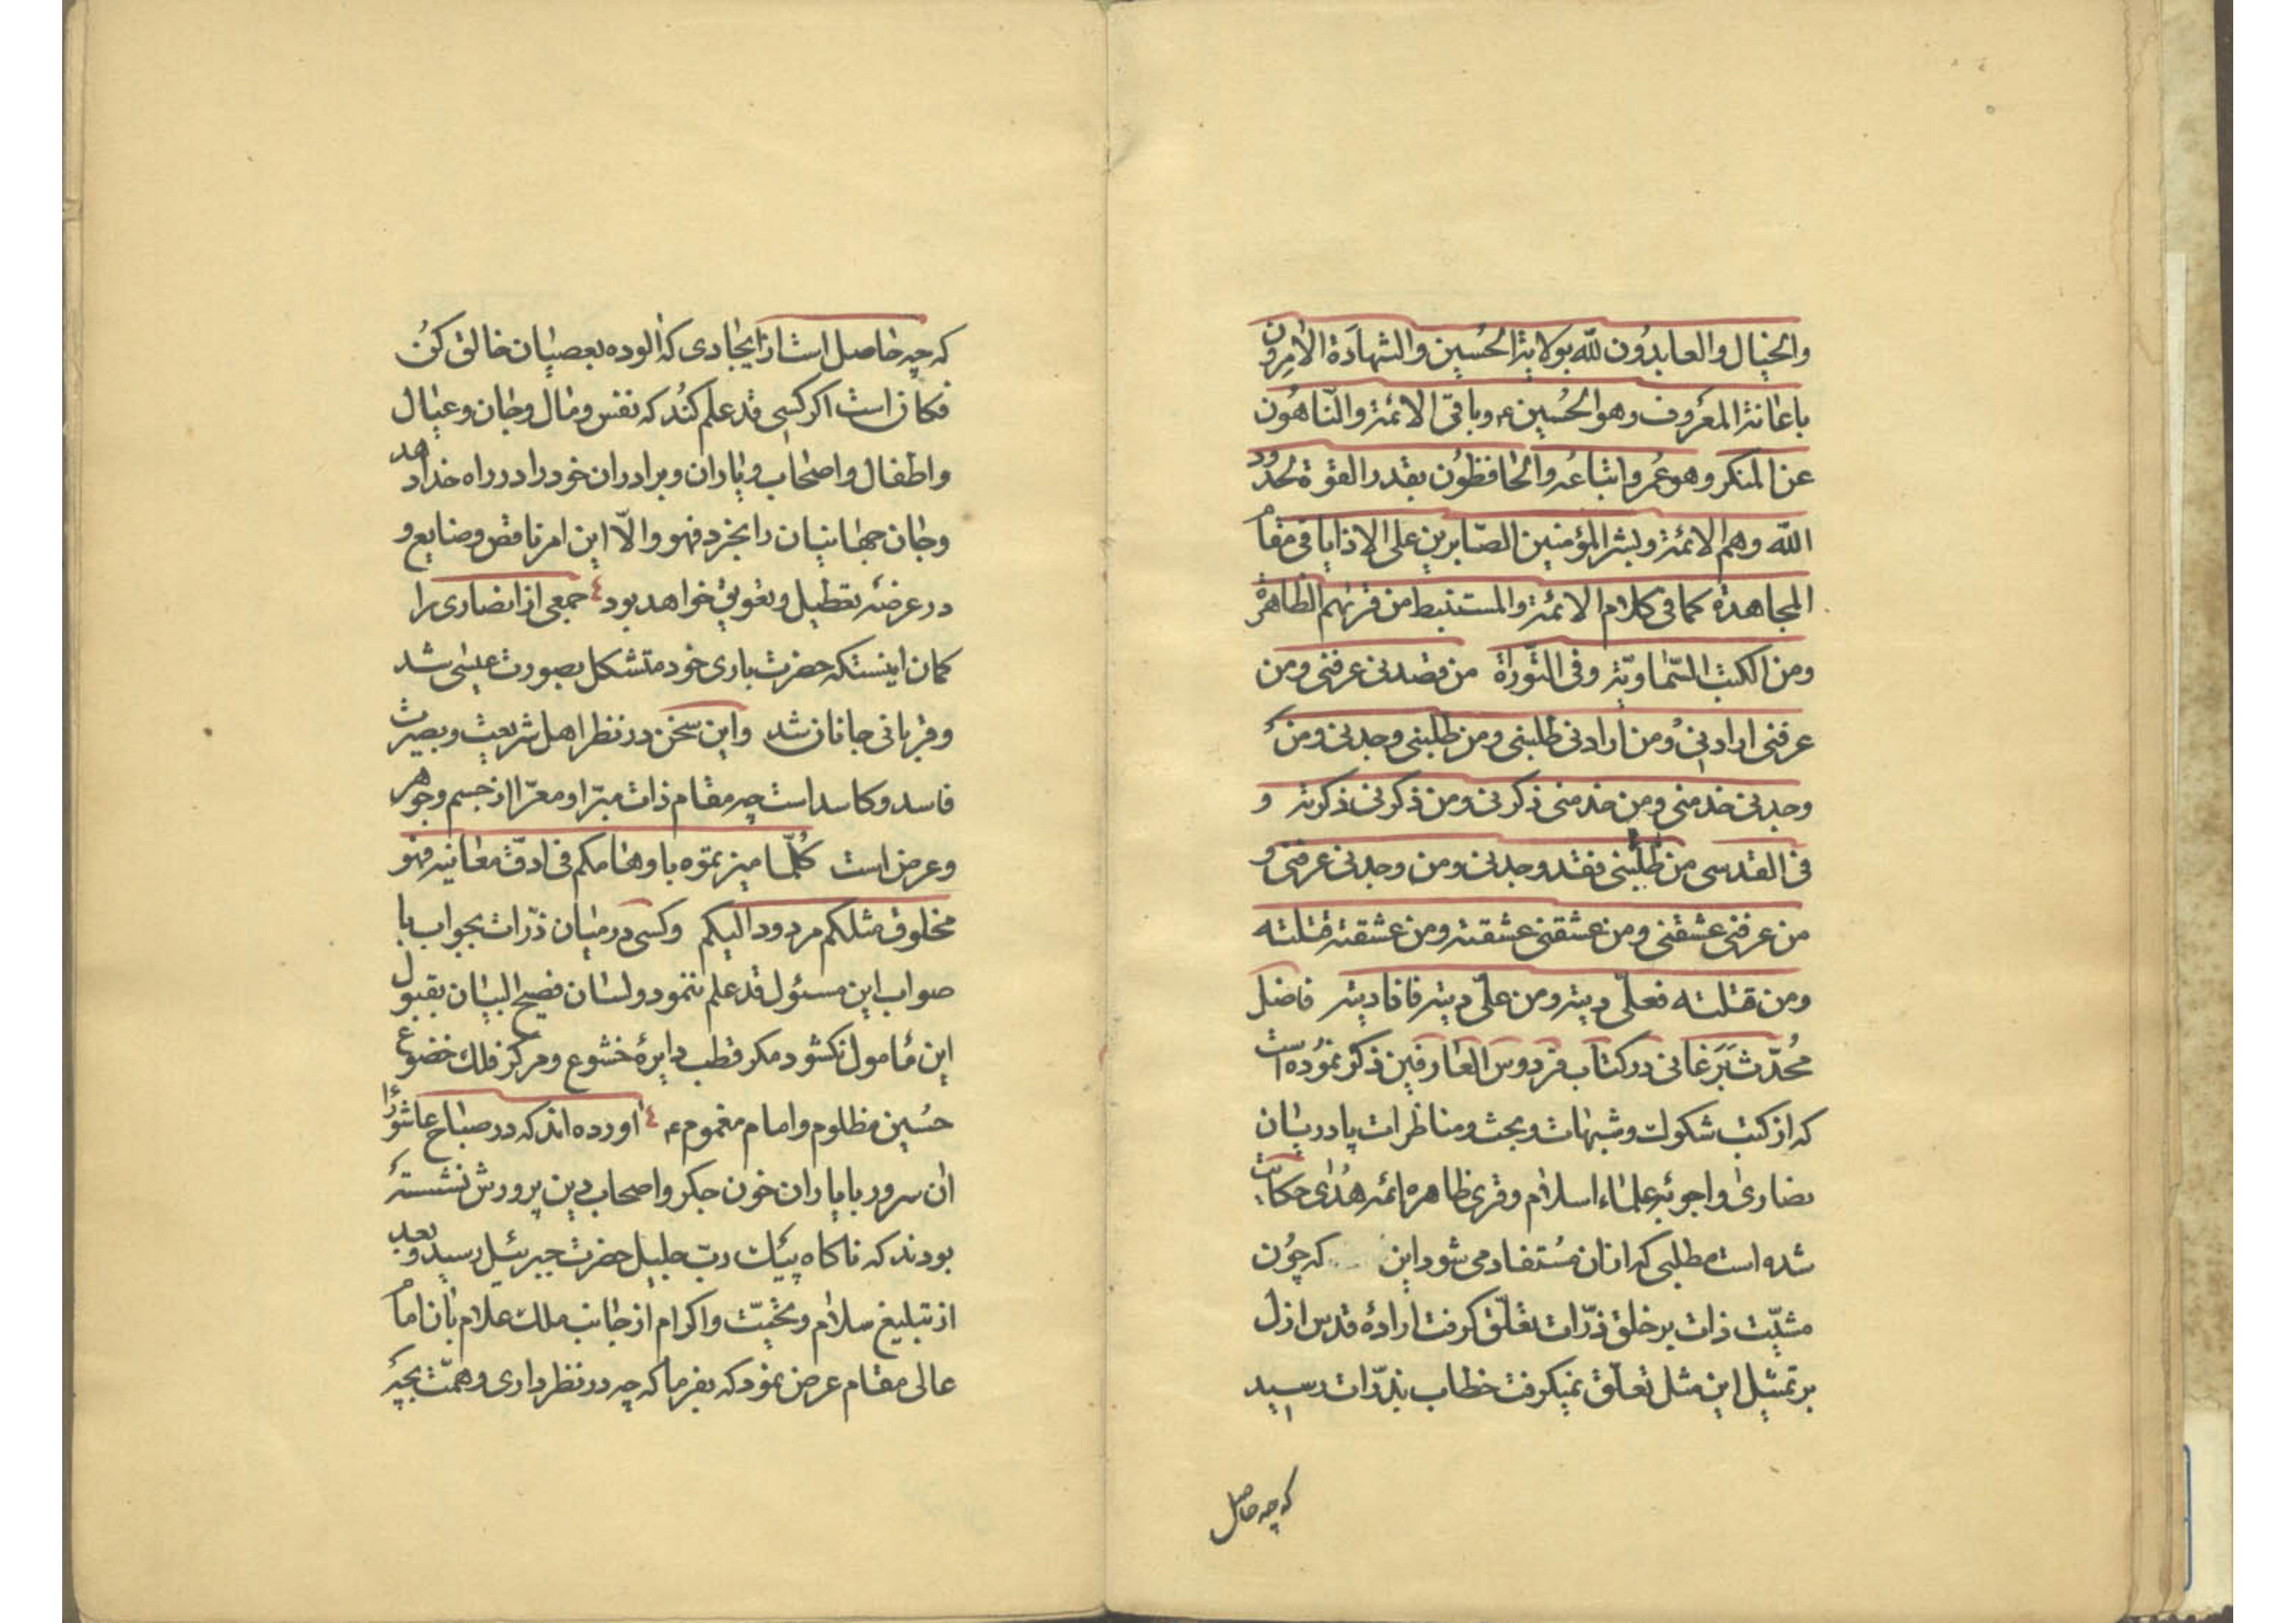 والخیال والعابدون لله بولایة الحُسین والشهادة الامرون
باعانة المعروف وهو الحُسین ع وباقی الائمة والنّاهون
عن المنکر وهو عُمر واتباعه والحافظون بقدر القوّة لحدود
الله وهم الائمة وبشر المؤمنین الصّابرین علی الاذایا فی مقام
المجاهدة کما فی کلام الائمة والمستنبط من قریهم الظاهرة
ومن الکتب السّماویّة وفی التّوراة من قصدنی عرفنی ومن
عرفنی ارادنی ومن ارادنی طلبنی ومن طلبنی وجدنی ومن
وجدنی خدمنی ومن خدمنی ذکرنی ومن ذکرنی ذکرته و
فی القدسی من طلبنی فقد وجدنی ومن وجدنی عرفنی و
من عرفنی عشقنی ومن عشقنی عشقته ومن عشقته قتلته
ومن قتلته فعلیّ دیته ومن علیّ دیته فانا دیته فاضل
مُحدّث بَرَغانی در کتاب فردوس العارفین ذکر نموده است
که از کتب شکوک وشبهات وبحث ومناظرات پادریان
نصاری واجوبۀ علماء اسلام وقری ظاهره ائمه هُدٰی حکایت
شده است مطلبی که از ان مُستفاد می شود این که چُون
مشیّت ذات بر خلق ذرّات تعلّق کرفت ارادهٔ قدس ازل
بر تمثیل این مثل تعلّق نمیکرفت خطاب بذرّات رسید
که چه حاصل
که چه حاصل است از ایجادی که الوده بعصیان خالق کن
فکان است اکر کسی قد علم کُند که نفس ومال وجان وعیال
واطفال واصحاب ویاران وبرادران خود را در راه خدا دهد
وجان جهانیان را بخرد فهو والّا این امر ناقص وضایع و
در عرضه تعطیل وتعویق خواهد بود ٤ جمعی از نصاری را
کمان اینستکه حضرت باری خود متشکل بصورت عیسی شد
وقربانی جانان شد واین سخن در نظر اهل شریعت وبصیرت
فاسد وکاسد است چه مقام ذات مبرّا ومعرّا از جسم وجوهر
وعرض است کُلّما میزتموه باوهامکم فی ادقّ معانیه فهو
مخلوق مثلکم مردود الیکم وکسی در میان ذرّات بجواب با
صواب این مسئول قد علم ننمود ولسان فصیح البیان بقبول
این مامول نکشود مکر قطب دایرهٔ خشوع ومرکز فلک خضوع
حُسین مظلوم وامام مغموم ع ٤ اورده اند که در صباح عاشورا
ان سرور با یاران خون جکر واصحاب دین پرورش نشسته
بودند که ناکاه پیک ربّ جلیل حضرت جبرئیل رسید وبعد
از تبلیغ سلام وتحیّت واکرام از جانب ملک علام بان امام
عالی مقام عرض نمود که بفرما که چه در نظر داری وهمّت بچه